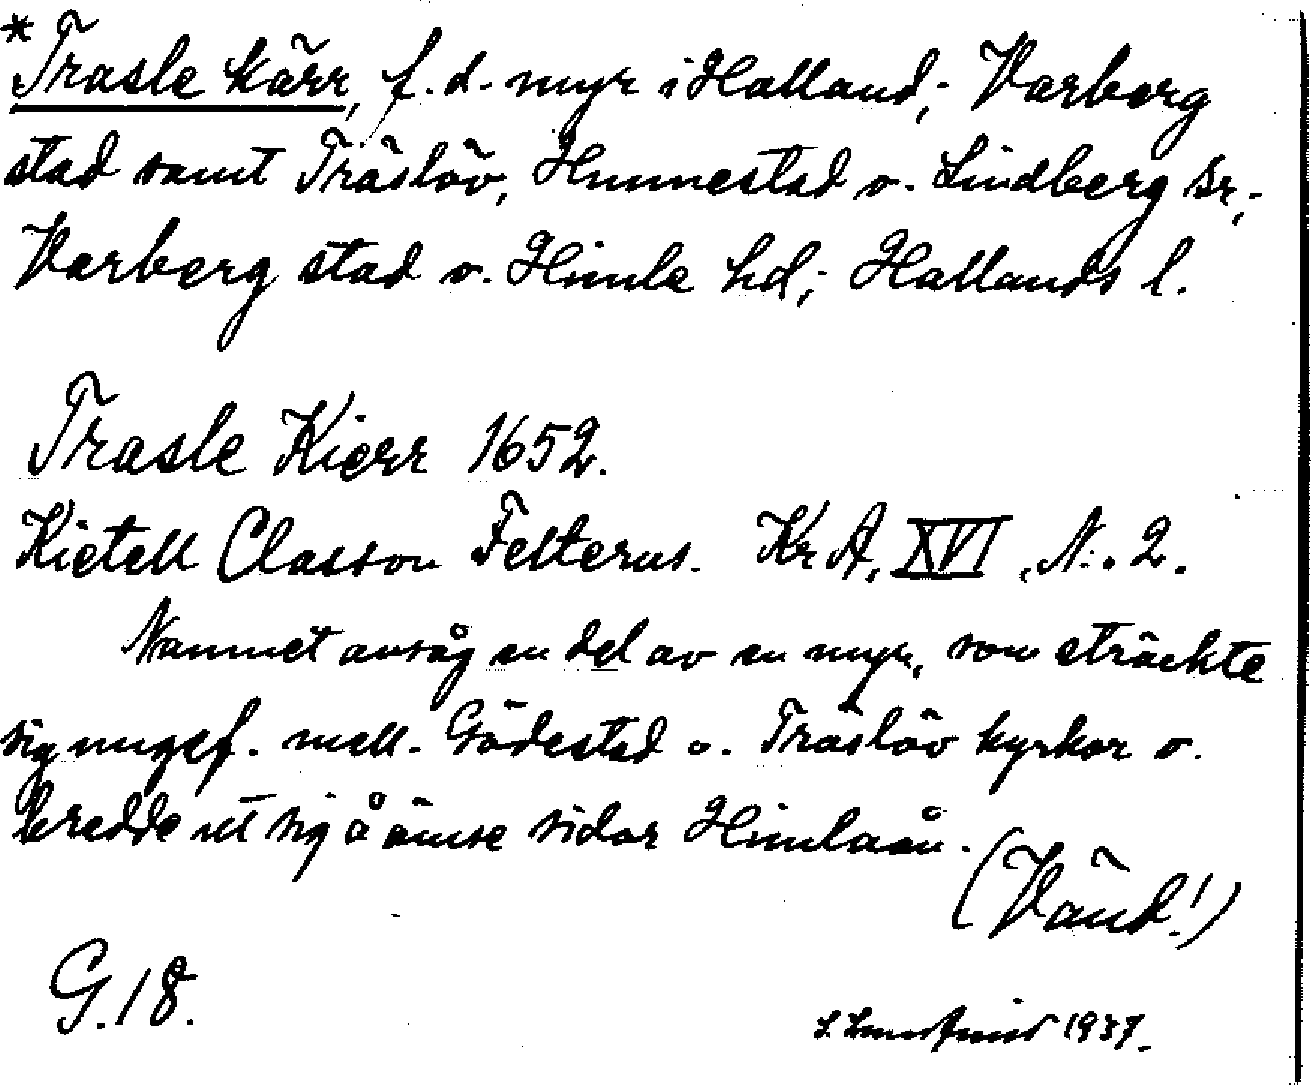 *Trasle kärr, f.d. myr i Halland; Varberg
stad samt Träslöv, Hunnestad o. Lindberg sr;
Varberg stad o. Himle hd; Hallands l.
Trasle Kierr 1652.
Kietell Classon Felterus. Kr A, XVI, N:. 2.
Namnet avsåg en del av en myr, som sträckte
sig ungef. mell. Gödestad o. Träslöv kyrkor o.
bredde ut sig å ömse sidor Himleån.
(Vänd!)
G.18.
1937.